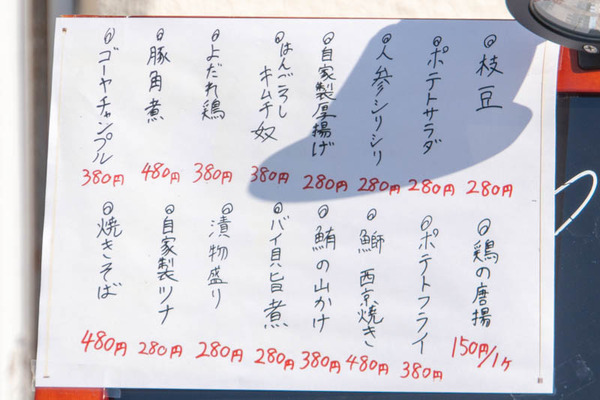 枝豆 280円
ポテトサラダ 280円
人参シリシリ 280円
自家製厚揚げ 280円
はんごろしキムチ奴 380円
よだれ鶏 380円
豚角煮 480円
ゴーヤチャンプル 380円
鶏の唐揚 150円/1ヶ
ポテトフライ 380円
鰤西京焼き 480円
鮪の山かけ 380円
バイ貝旨煮 280円
漬物盛り 280円
自家製ツナ 280円
焼きそば 480円